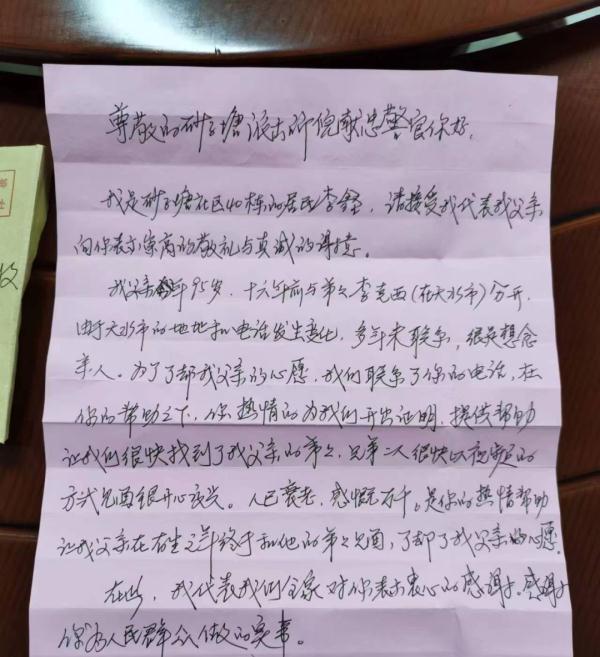 尊敬的砂子塘派出所倪献忠警官你好,
我是砂子塘社区40栋的居民李舒，请接受我代表我父亲
向你表示崇高的敬礼与真诚的谢意。
我父亲今年95岁，十六年前与弟弟李克西(在天水市)分开,
由于天水市的地址和电话发生变化，多年未联系，很是想念
亲人。为了了却我父亲的心愿，我们联系了你的电话，在
你的帮助之下，你热情的为我们开出证明，提供帮助
让我们很快找到了我父亲的弟弟，兄弟二人很快以视频的
方式见面很开心。人已衰老，感慨万千。是你的热情帮助
让我父亲在有生之年终于和他的弟弟见面，了却了我父亲的心愿。
在此，我代表我们全家对你表示衷心的感谢。感谢
你为人民群众做的实事。
收